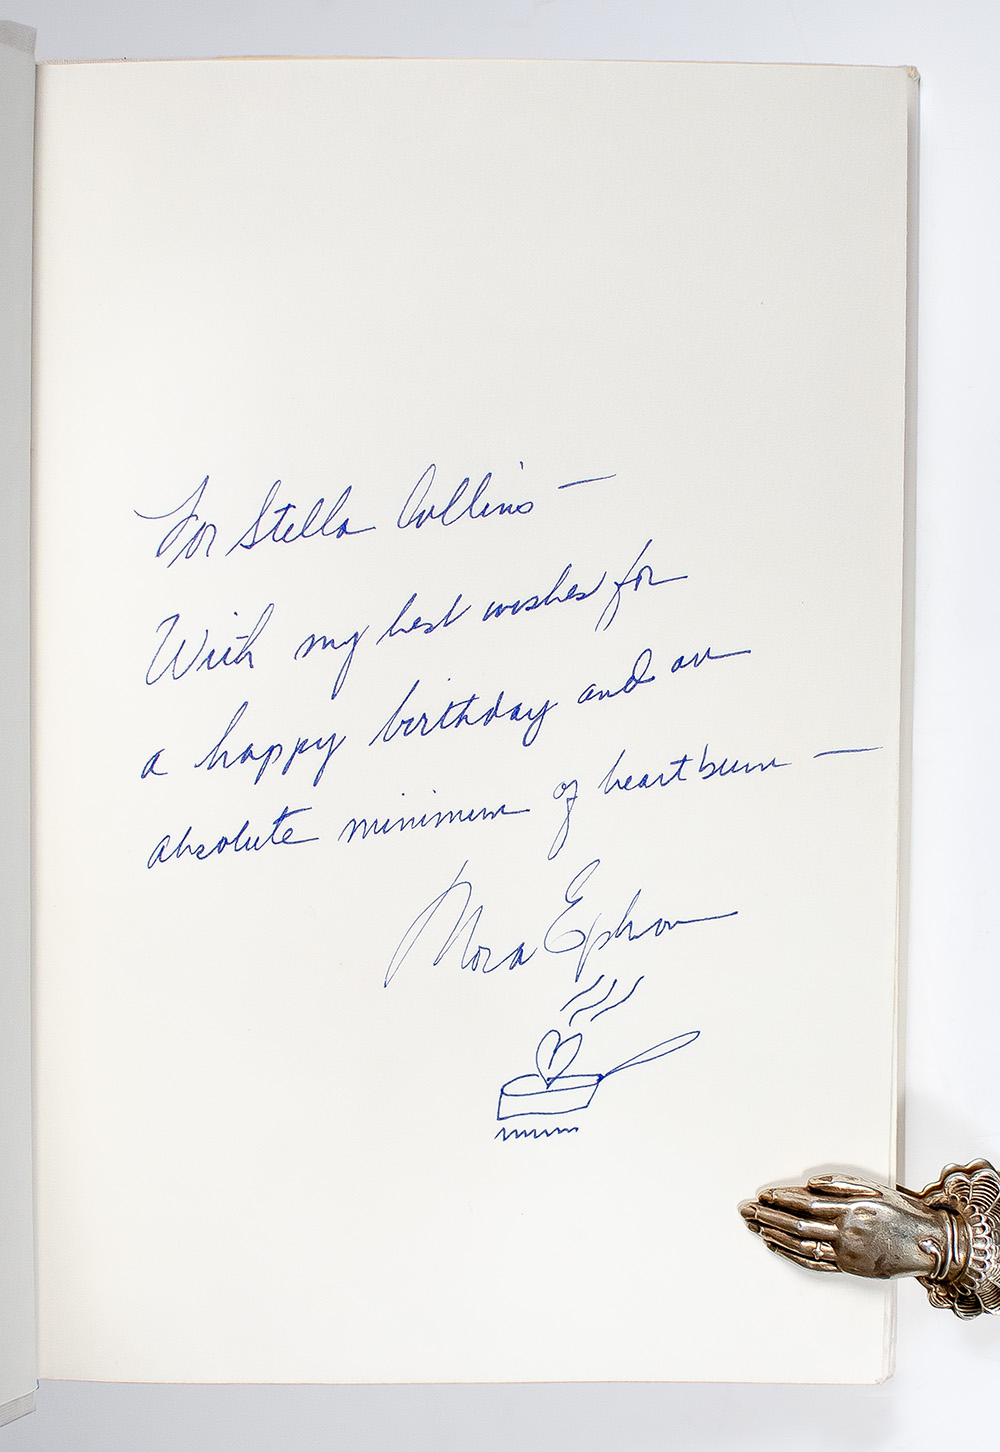 For Stella Collins —
With my best wishes for
a happy birthday and an
absolute minimum of heartburn —
Nora Ephron